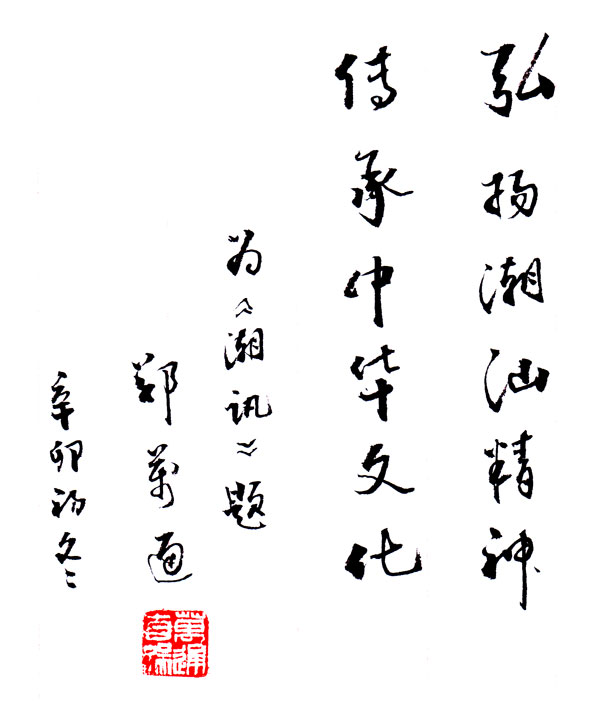 弘扬潮汕精神
传承中华文化
为《潮讯》题
郑万通
辛卯初冬